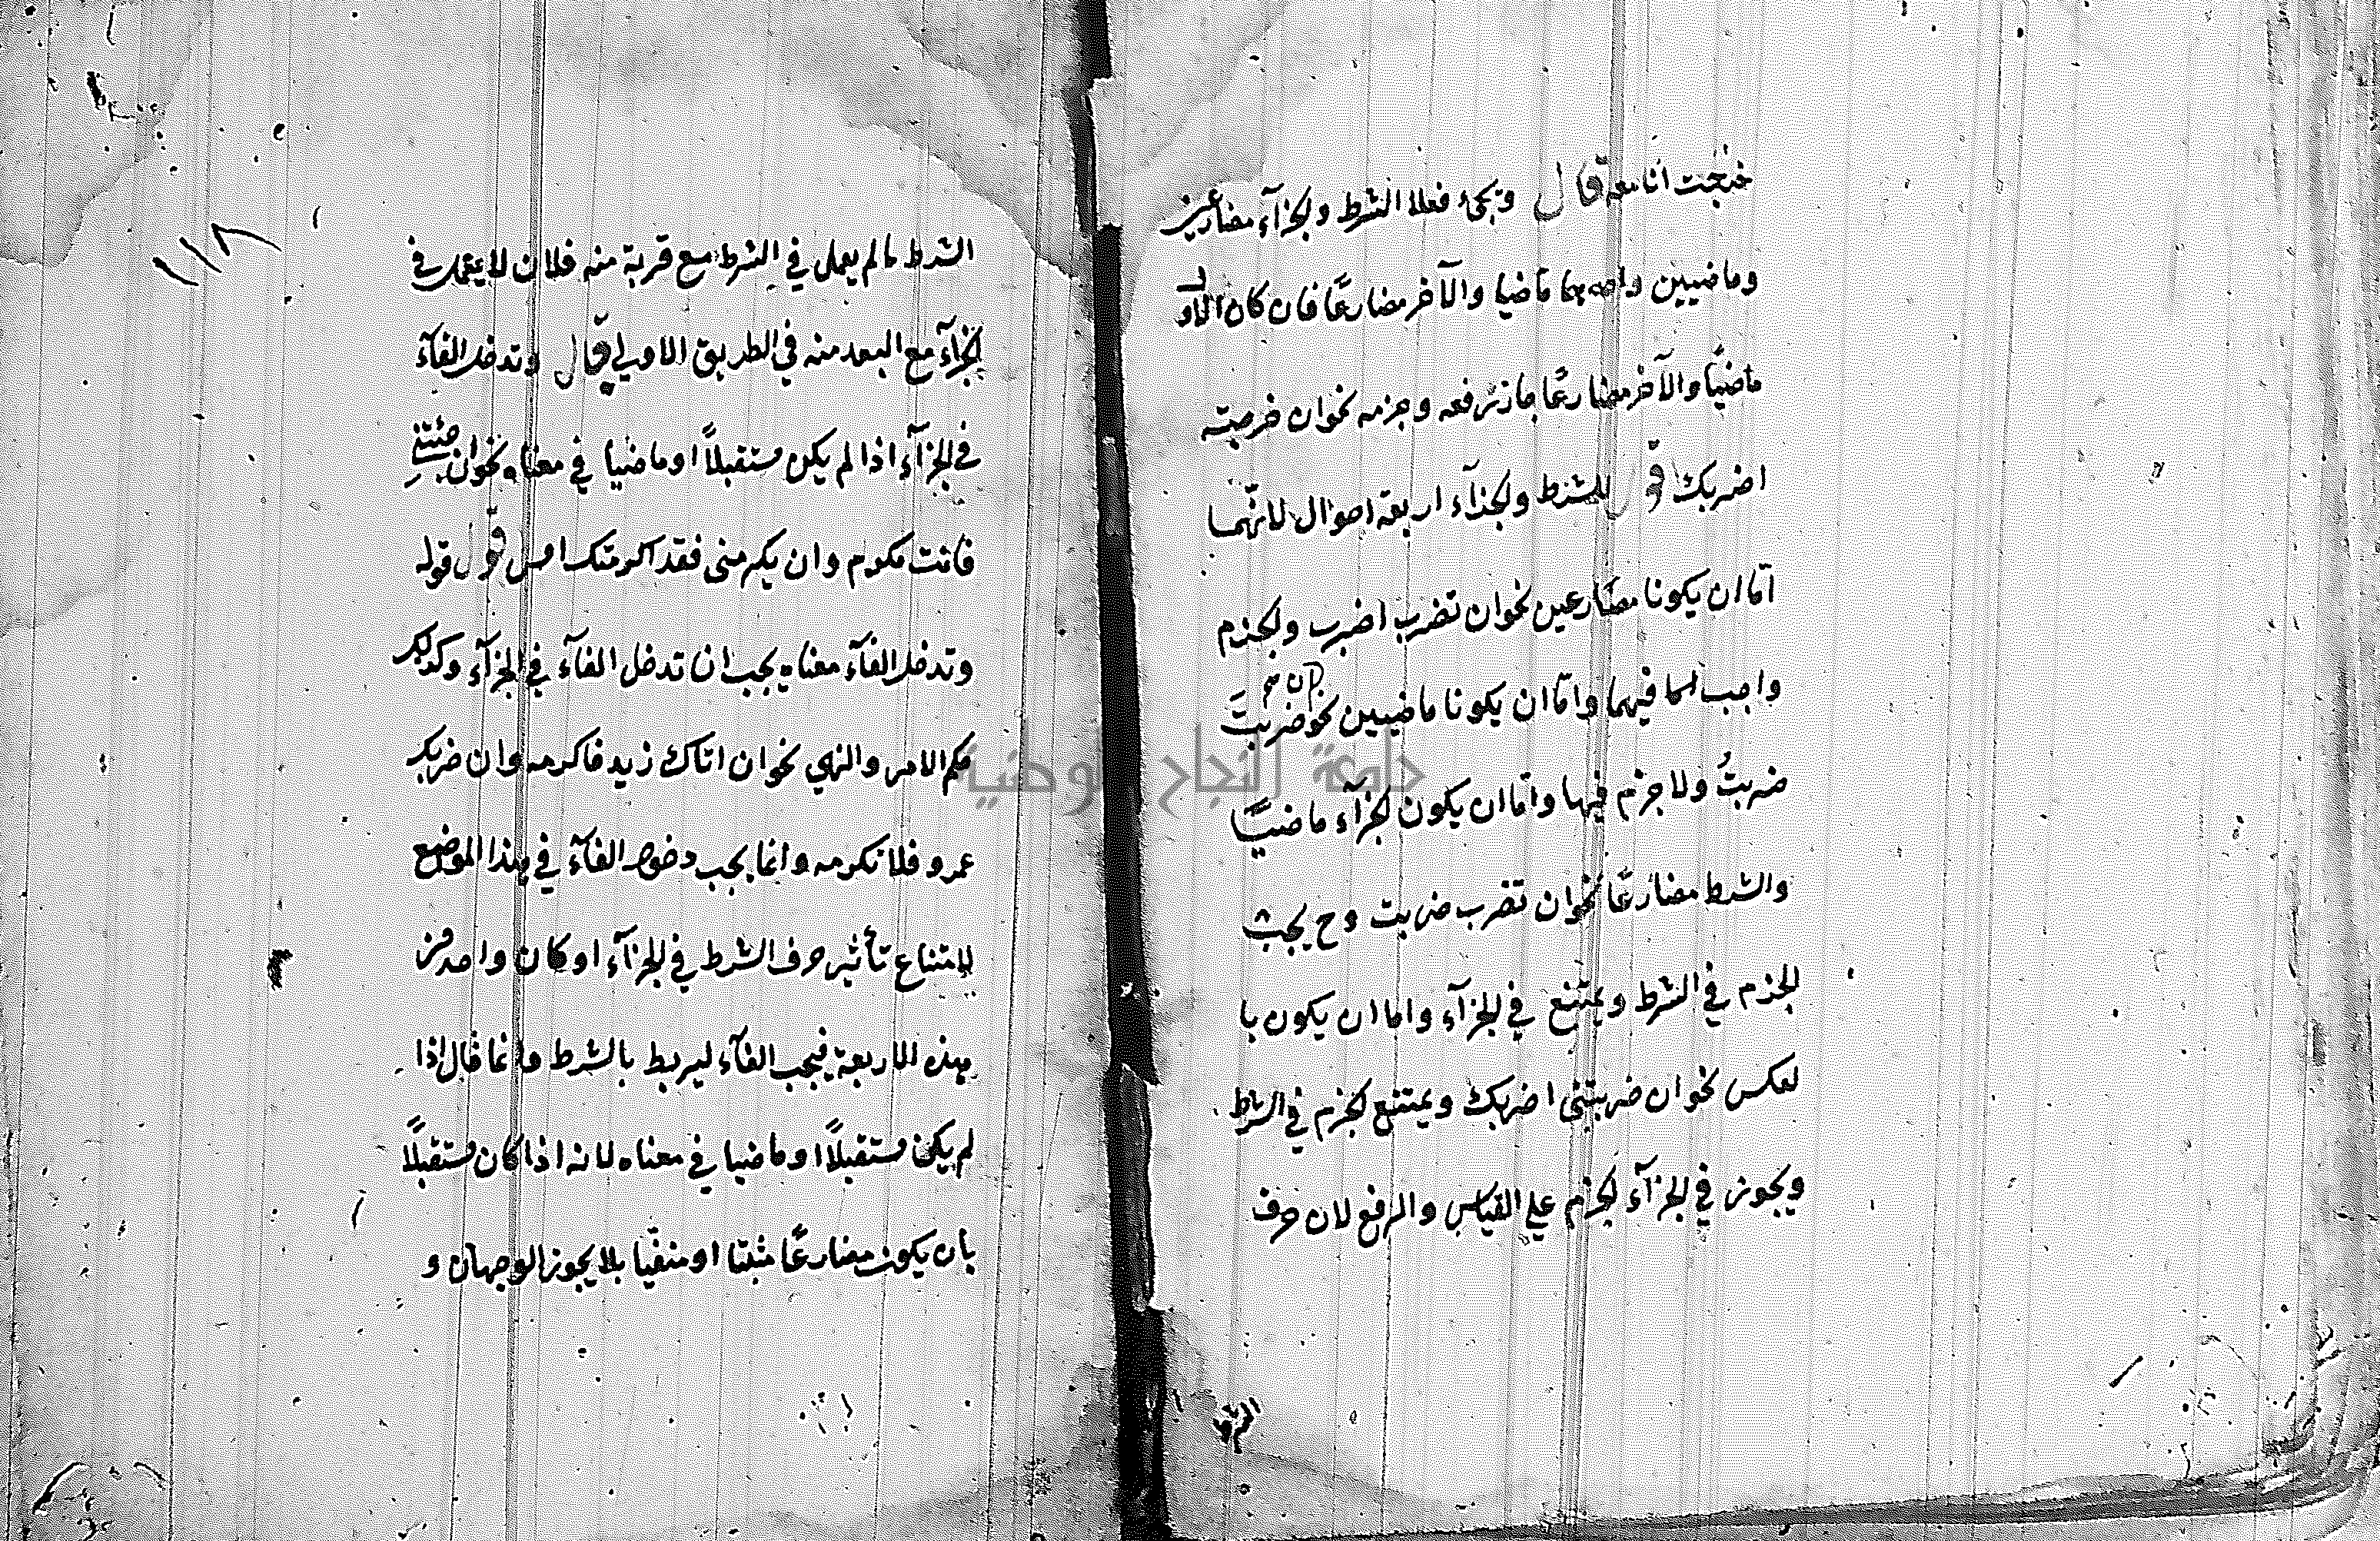 خرجت انا معه قال ويجئ فعلا الشرط والجزآء مضارعين
وماضيين واحدهما ماضيا والآخر مضارعًا فان كان الاول
ماضيًا والآخر مضارعًا جاز رفعه وجزمه نحو ان ضربته
اضربك اقول للشرط والجزآء اربعة احوال لانّهما
امّا ان يكونا مضارعين نحو ان تضرب اضرب والجزم
واجب فيهما وامّا ان يكونا ماضيين نحو ان ضربتَ
ضربتُ ولا جزم فيها وامّا ان يكون الجزآء ماضيًا
والشرط مضارعًا نحو ان تضرب ضربت وح يجب
الجزم في الشرط ويمتنع في الجزآء واما ان يكون با
لعكس نحو ان ضربتنى اضربك ويمتنع الجزم في الشرط
ويجوز في الجزآء الجزم علي القياس والرفع لان حرف
الشرط
١١٨
الشرط لما لم يعمل في الشرط مع قربة منه فلان لا يعمل في
الجزآء مع البعد منه في الطريق الاولي قال وتدخل الفآء
في الجزآء اذا لم يكن مستقبلاً او ماضيا في معناه نحو ان جئتني
فانت مكرم وان يكرمنى فقد اكرمتك امس اقول قوله
وتدخل الفآء معناه يجب ان تدخل الفآء في الجزآء وكذلك
حكم الامر والنهي نحو ان اتاك زيد فاكرمه وان ضربك
عمرو فلا تكرمه وانما يجب دخول الفآء في هذا الموضع
لامتناع تأثير حرف الشرط في الجزآء او كان واحد من
هذه الاربعة فيجب الفآء ليربط بالشرط وانما قال اذا
لم يكن مستقبلاً او ماضيا في معناه لانه اذا كان مستقبلاً
بان يكون مضارعًا مثبتا او منفيّا بلا يجوز الوجهان و